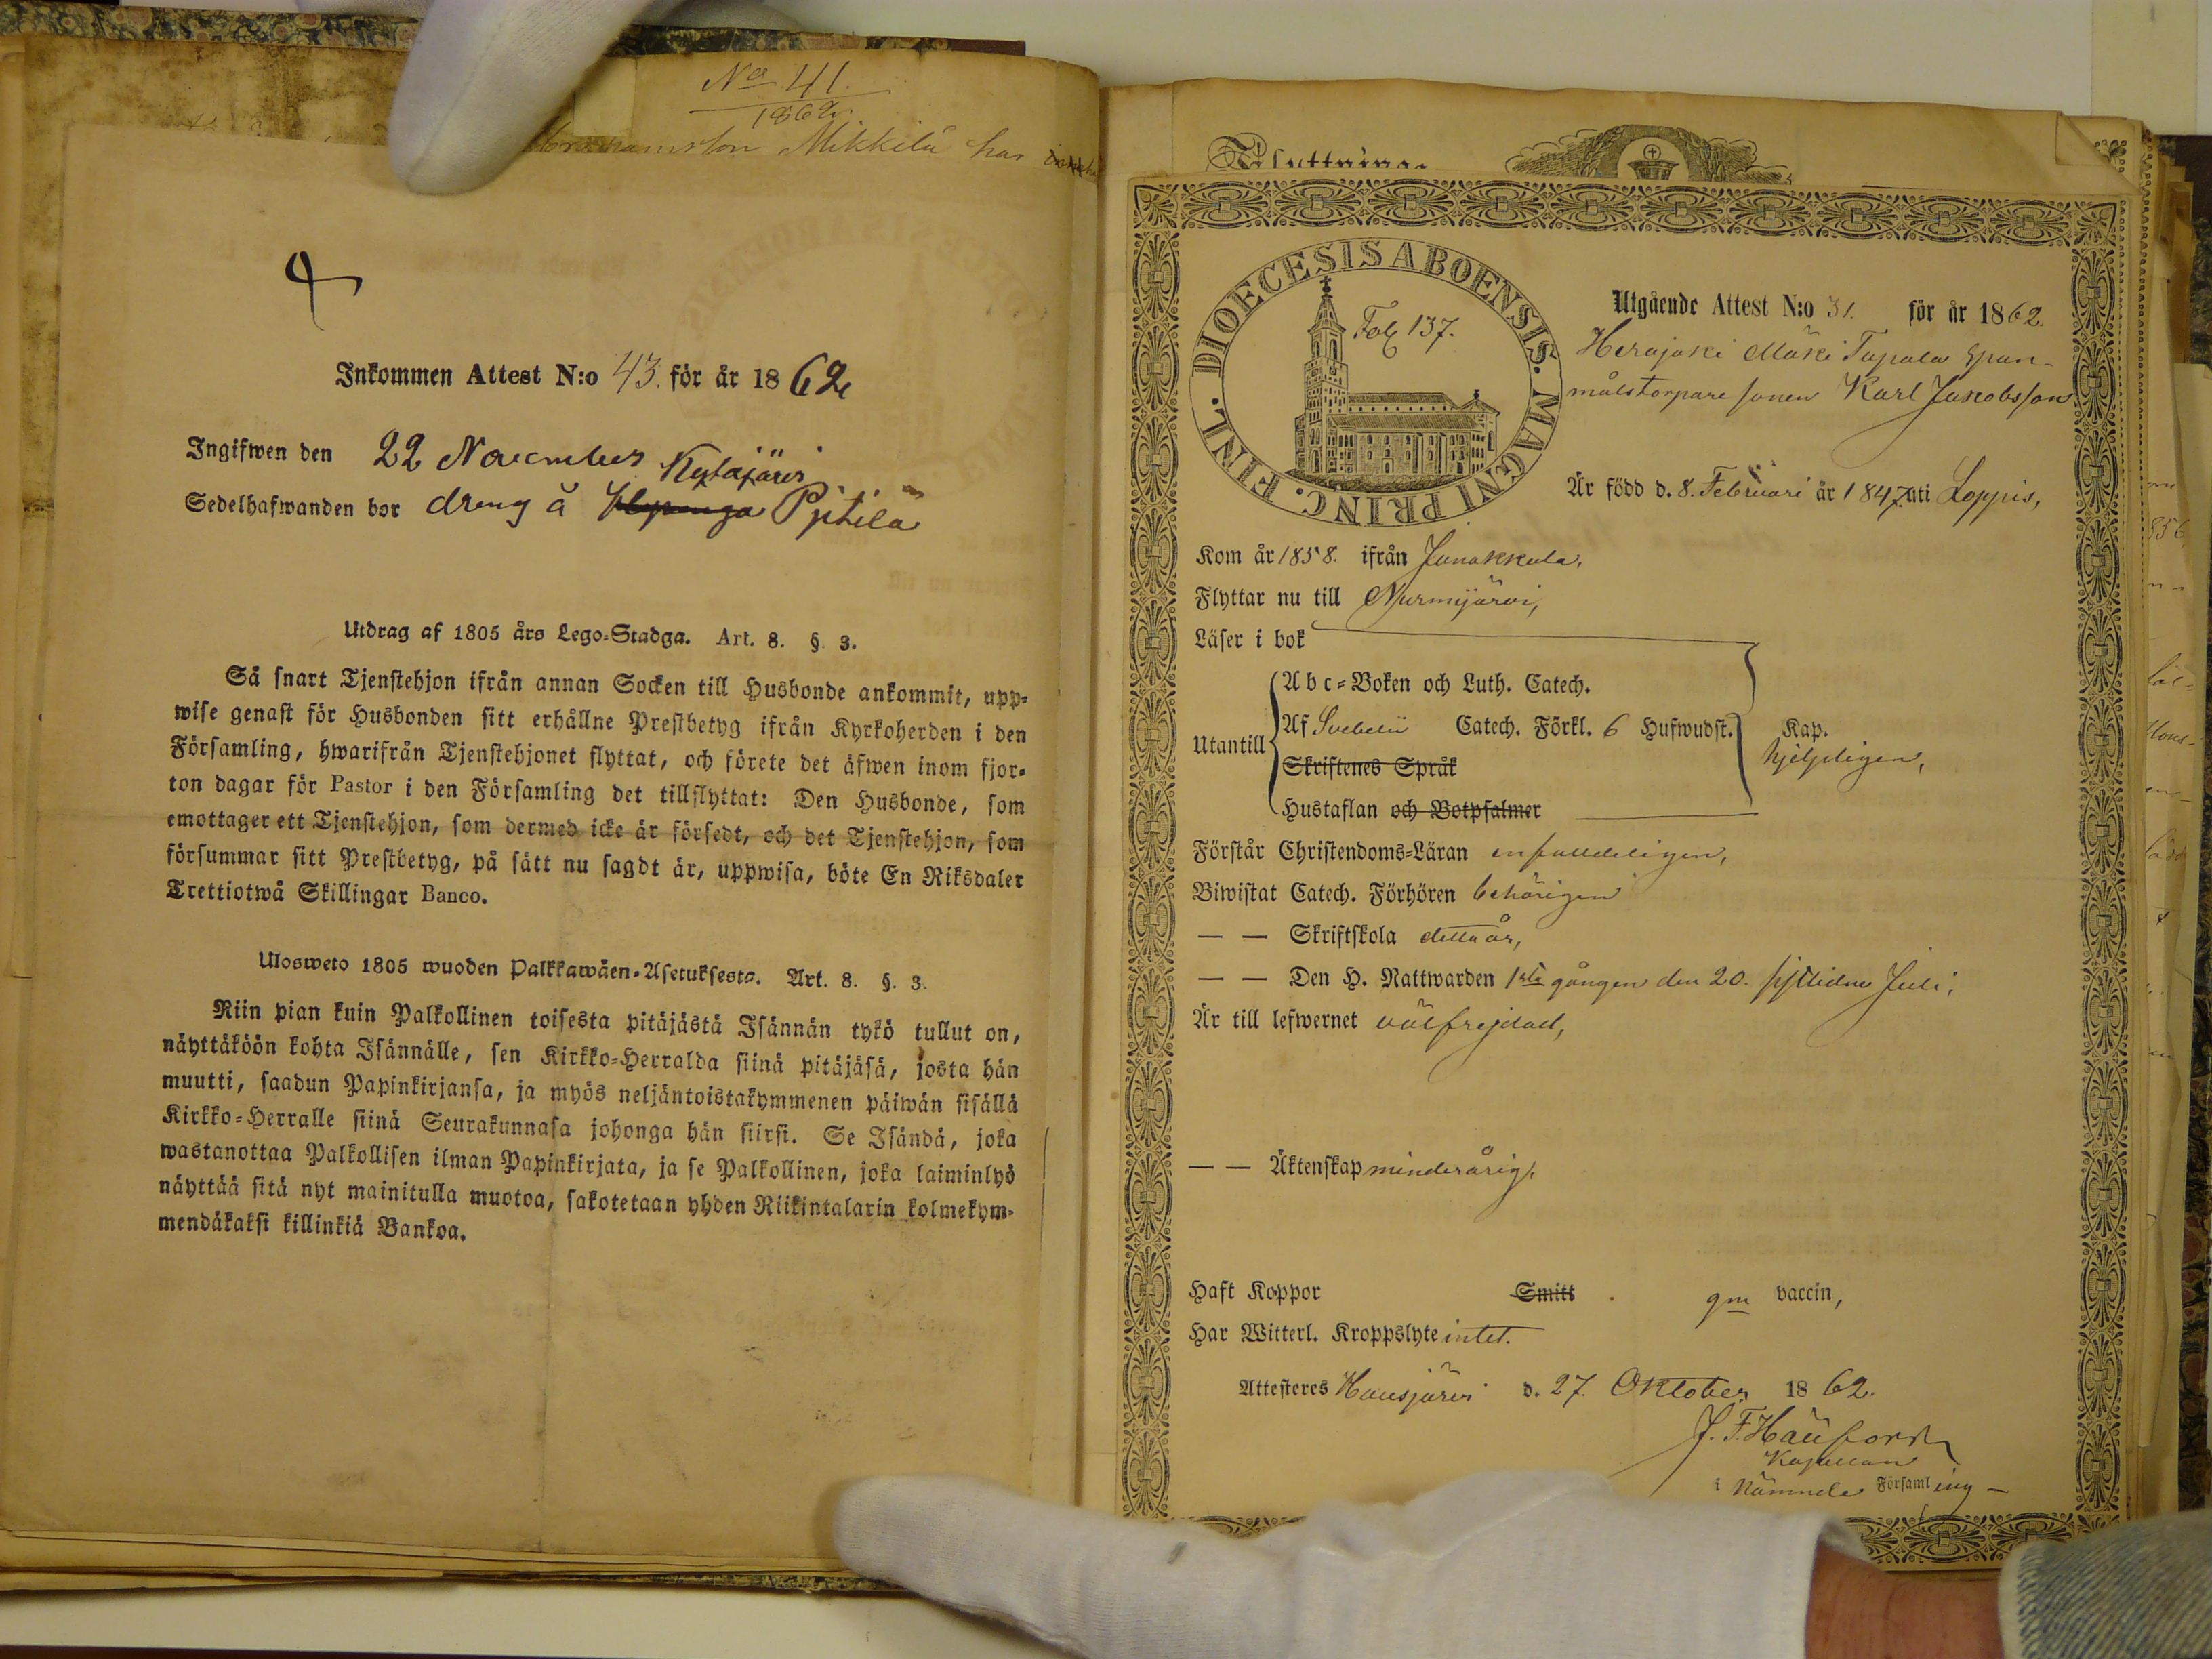 No 41.
1862.
Mikkilä har
Inkommen Attest N:o 43. för år 1862
Ingifwen den 22 November
Kytäjärvi
Sedelhafwanden bor dreng å Pijtilä
Utdrag af 1805 års Lego-Stadga. Art. 8. §. 3.
Så snart Tjenstehjon ifrån annan Socken till Husbonde ankommit, upp-
wise genast för Husbonden sitt erhållne Prestbetyg ifrån Kyrkoherden i den
Församling, hwarifrån Tjenstehjonet flyttat, och förete det äfwen inom fjor-
ton dagar för Pastor i den Församling det tillflyttat: Den Husbonde, som
emottager ett Tjenstehjon, som dermed icke är försedt, och det Tjenstehjon, som
försummar sitt Prestbetyg, på sätt nu sagdt är, uppwisa, böte En Riksdaler
Trettiotwå Skillingar Banco.
Ulosweto 1805 wuoden Palkkawäen-Asetuksesta. Art. 8. §. 3.
Niin pian kuin Palkollinen toisesta pitäjästä Isännän tykö tullut on,
näyttäköön kohta Isännälle, sen Kirkko-Herralda siinä pitäjäsä, josta hän
muutti, saadun Papinkirjansa, ja myös neljäntoistakymmenen päiwän sisällä
Kirkko-Herralle siinä Seurakunnasa johonga hän siirsi. Se Isändä, joka
wastanottaa Palkollisen ilman Papinkirjata, ja se Palkollinen, joka laiminlyö
näyttää sitä nyt mainitulla muotoa, sakotetaan yhden Riikintalarin kolmekym-
mendäkaksi killinkiä Bankoa.
DIOECESIS ABOENSIS. MAGNI PRINC. FINL.
Fol 137.
Utgående Attest N:o 31. för år 1862.
Herajoki Mäki Tapola Span-
målstorpare sonen Karl Jakobsson
Är född d. 8. Februari år 1847. uti Loppis,
Kom år 1858. ifrån Janakkala,
Flyttar nu till Nurmijärvi,
Läser i bok
Utantill
Abc-Boken och Luth. Catech.
Af Svebelii Catech. Förkl. 6 Hufwudst. Kap.
Skriftenes Språk
hjelpligen,
Hustaflan och Botpsalmer
Förstår Christendoms-Läran enfaldeligen,
Biwistat Catech. Förhören behörigen
— — Skriftskola detta år,
— — Den H. Nattwarden 1sta gången den 20. sistlidne Juli,
Är till lefwernet välfrejdad,
— — Äktenskap minderårig.
Haft Koppor Smitt gm vaccin,
Har Witterl. Kroppslyte intet.
Attesteres Hausjärvi d. 27. Oktober 1862.
Kapellan
i Nämnde Församling —